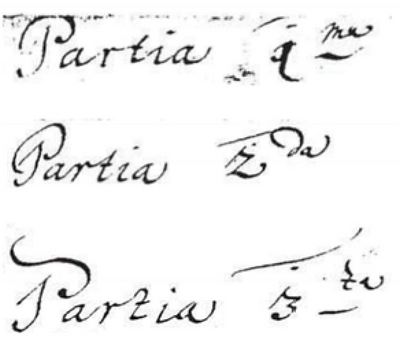 Partia 1ma
Partia 2da
Partia 3za